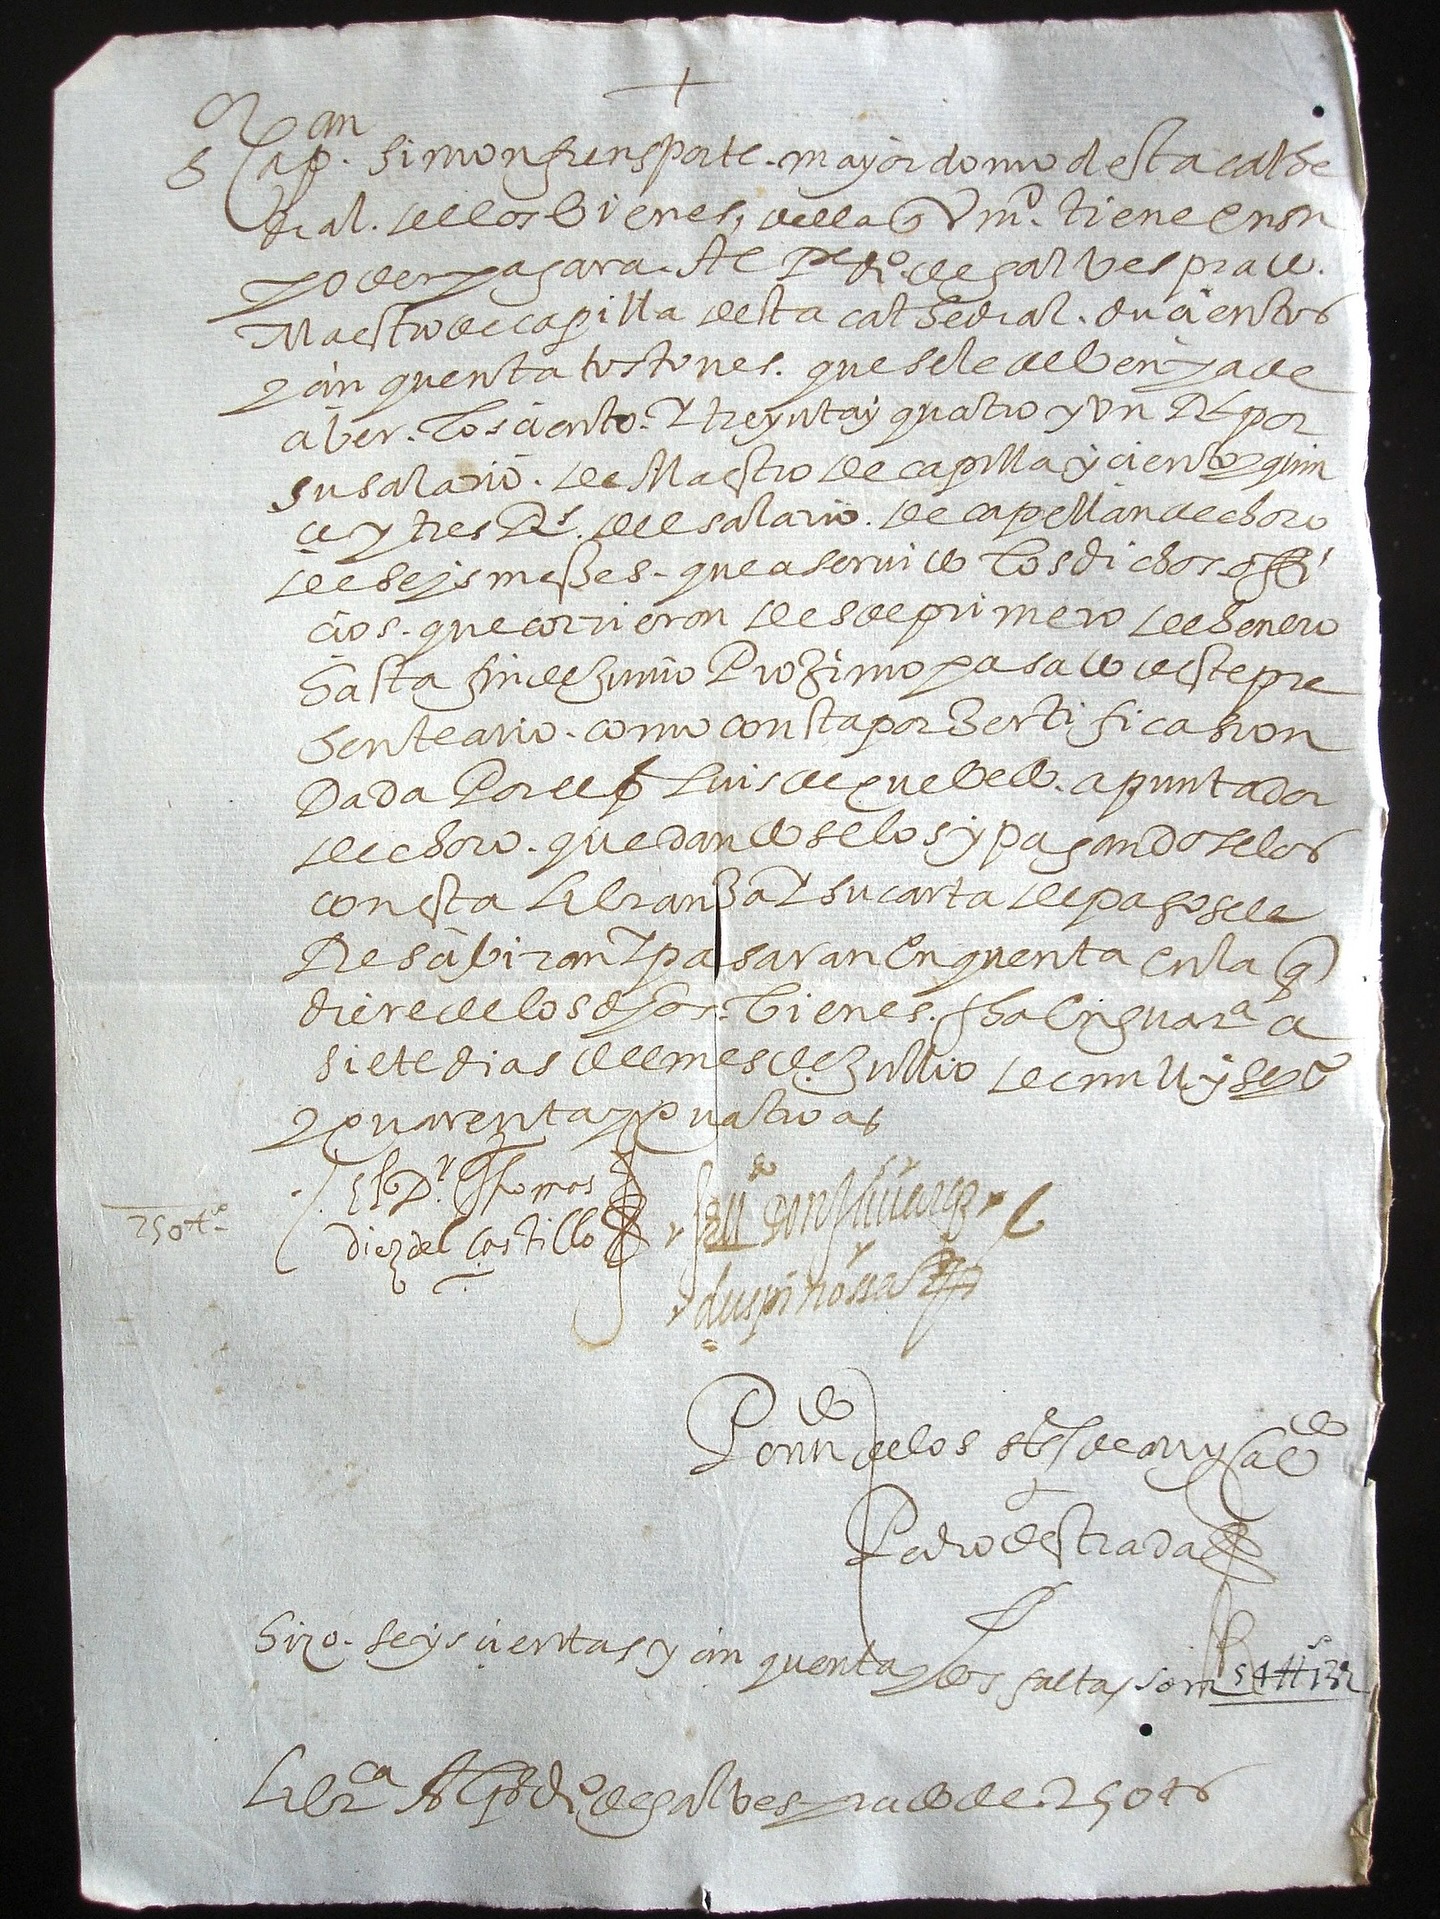 +
Sr Capan. Simon frens porte. mayordomo desta cathe
dral. de los bienes, della q Vm. tiene en su
poder pagara. Al Pe. do. de galves prado.
Maestro de capilla desta cathedral. ducientos
y cinquenta tostones. que se le deben y a de
aber. los ciento. y treynta y quatro y un Rl. por
su salario. de Maestro de capilla y ciento y quin
ce y tres Rs. de salario. de capellan de choro
de seys messes. que a servido los dichos offi
cios. que corrieron desde primero de henero
hasta fin de Junio Proximo pasado deste pre
sente año. como consta por Zertificazion
Dada Por el Luis de quebedo. apuntador
de choro. que dandoselos y pagandoselos
con esta Libranza y su carta de pago se le
Resçibiran y pasaran en quenta en la q
diere de los dhos. bienes. fha en guata. a
siete dias del mes de Jullio de mill y seys
y quarenta y quatro as
El Dr. Thomas
diez del Castillo
250 ts.
despinosa
Por mdo de los sres dean y cabdo
Pedro de strada
hizo. seyscientas y cinquenta y dos faltas son
Libca. Al Pe. do. de galves prado de 250 ts